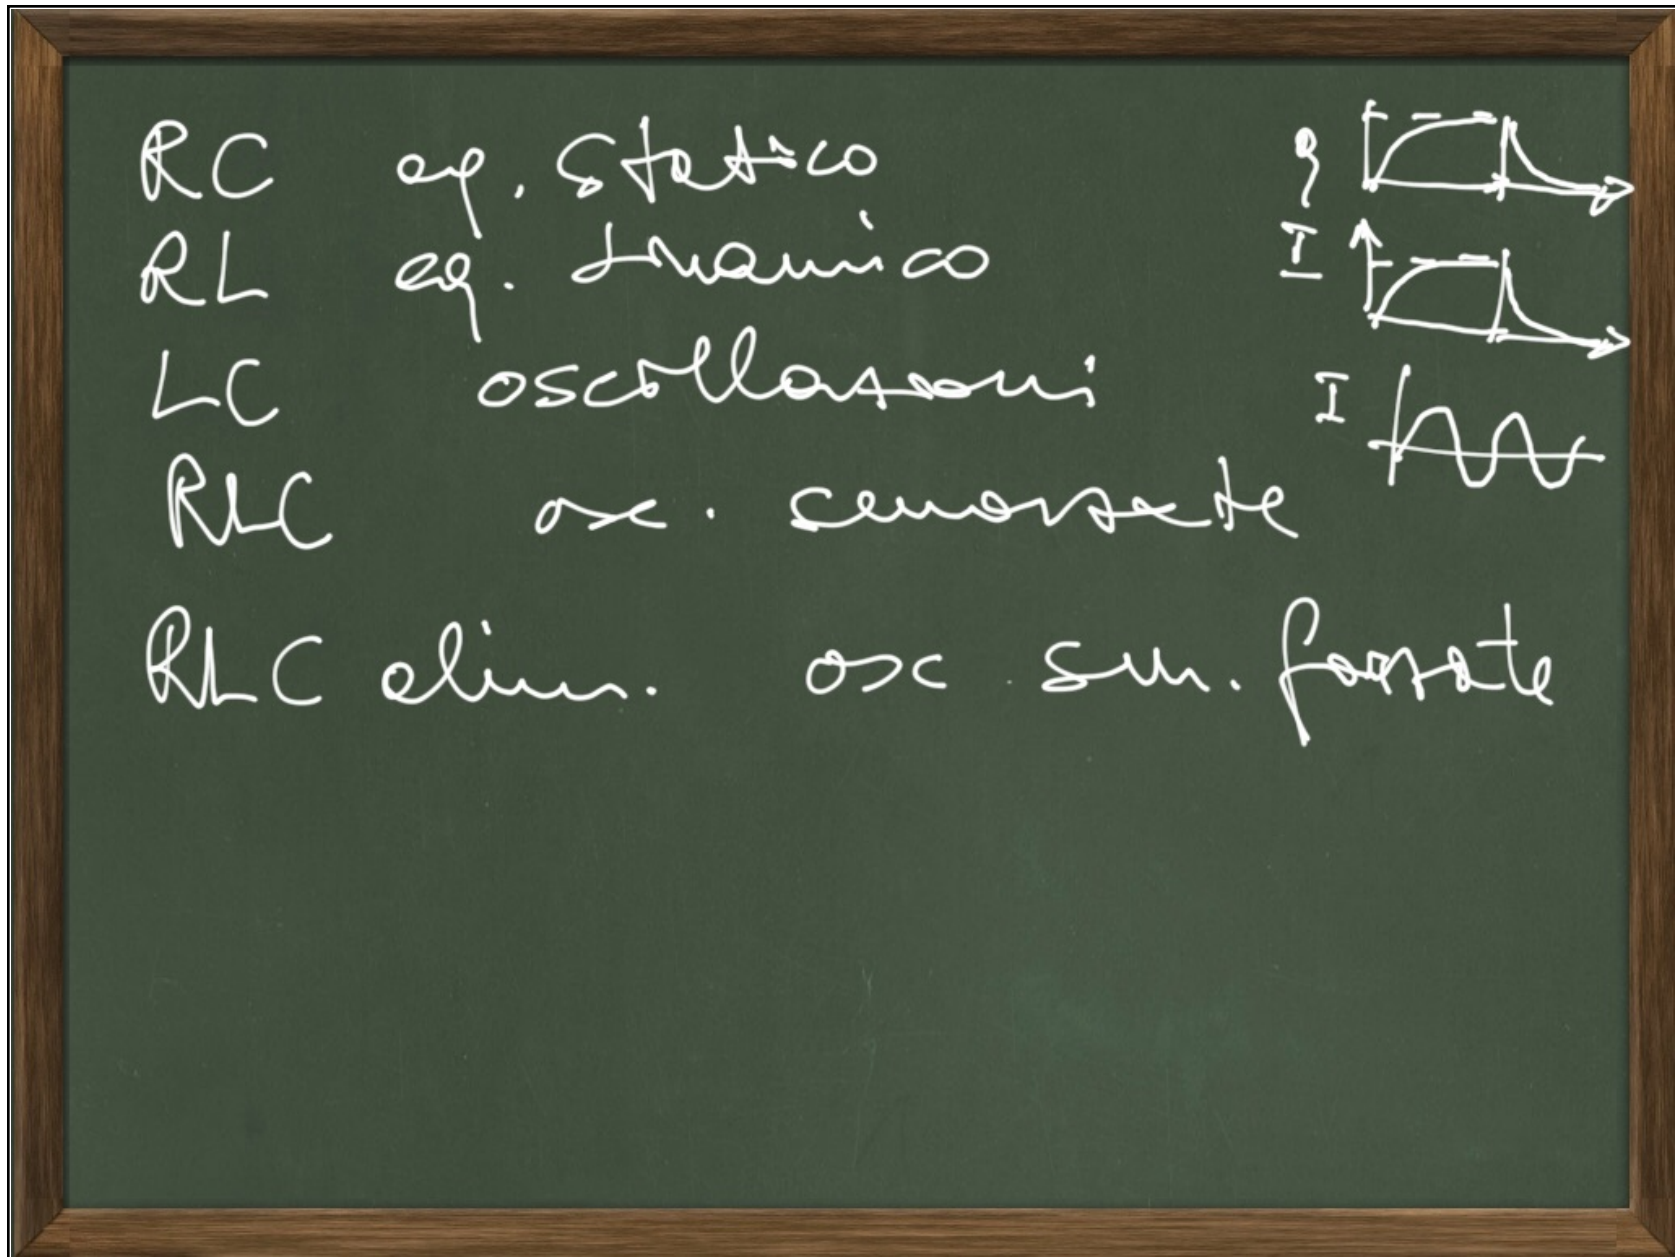 RC eq. statico q
RL eq. dinamico I
LC oscillazioni I
RLC osc. smorzate
RLC alim. osc sm. forzate